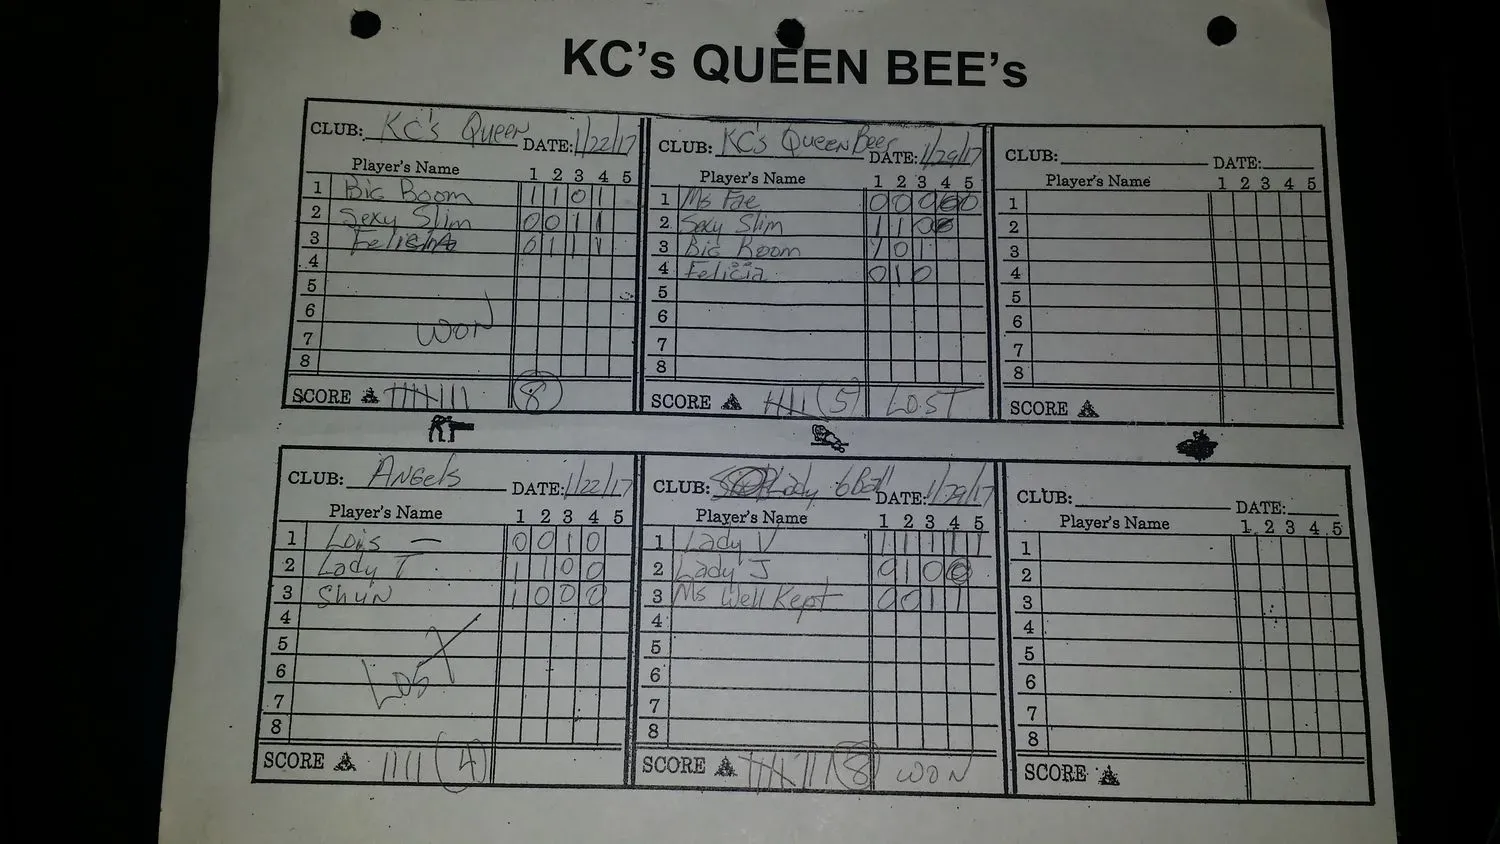 KC's QUEEN BEE's
CLUB: KC's Queen DATE: 1/22/17
Player's Name 1 2 3 4 5
1 Big Boom 1 1 0 1
2 Sexy Slim 0 0 1 1
3 Felicia 0 1 1 1
4
5
6
WON
7
8
SCORE 8
CLUB: KC's Queen Bees DATE: 1/29/17
Player's Name 1 2 3 4 5
1 Ms Fae 0 0 0 0 0
2 Sexy Slim 1 1 0
3 Big Boom 1 0 1
4 Felicia 0 1 0
5
6
7
8
SCORE (5) LOST
CLUB: DATE:
Player's Name 1 2 3 4 5
1
2
3
4
5
6
7
8
SCORE
CLUB: Angels DATE: 1/22/17
Player's Name 1 2 3 4 5
1 Lois — 0 0 1 0
2 Lady T 1 1 0 0
3 Shun 1 0 0 0
4
5
6
Lost
7
8
SCORE (4)
CLUB: Lady 6 Ball DATE: 1/29/17
Player's Name 1 2 3 4 5
1 Lady V 1 1 1 1 1
2 Lady J 0 1 0 0
3 Ms Well Kept 0 0 1 1
4
5
6
7
8
SCORE (8) WON
CLUB: DATE:
Player's Name 1 2 3 4 5
1
2
3
4
5
6
7
8
SCORE